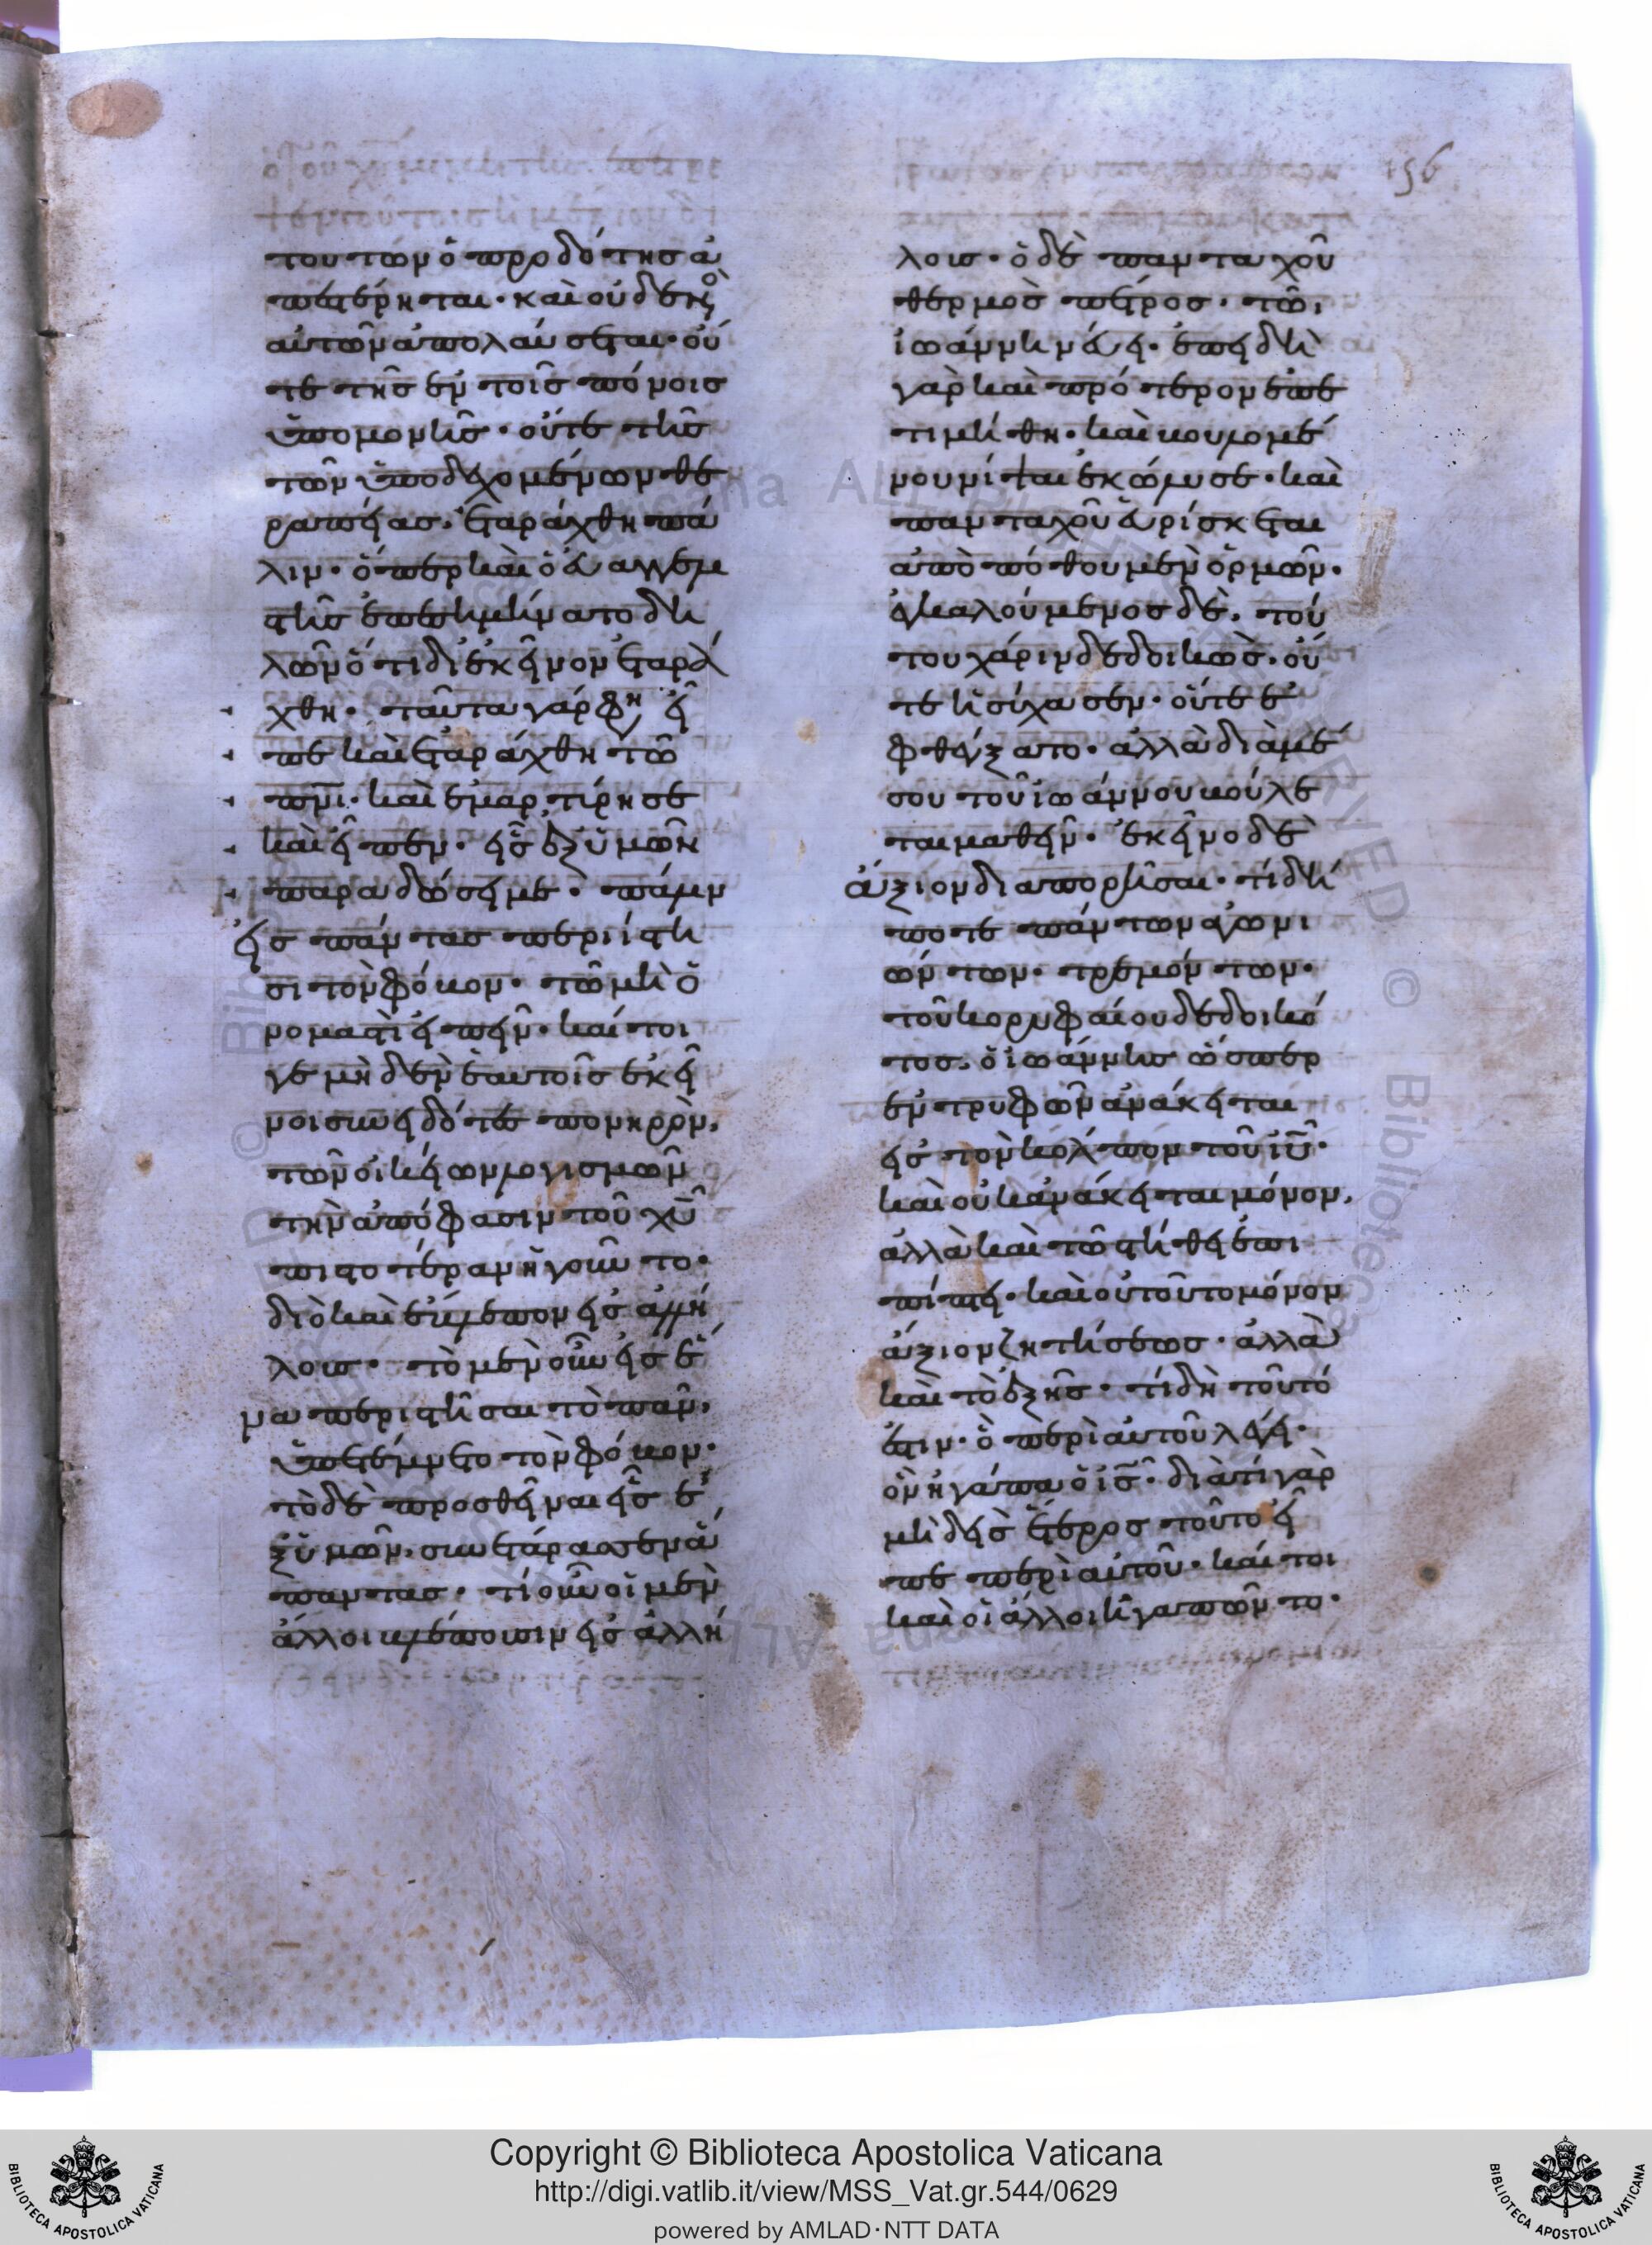 156
τούτων ὁ προδότης ἀ
πεστέρηται· καὶ οὐδενὸς
αὐτῶν ἀπολαύσεται· οὔ
τε τῆς ἐν τοῖς πόνοις
ὑπομονῆς· οὔτε τῆς
τῶν ὑποδεχομένων θε
ραπείας. ἐταράχθη πά
λιν· ὅπερ καὶ ὁ εὐαγγελι
στὴς ἐπεσημήνατο δη
λῶν ὅτι δι' ἐκεῖνον ἐταρά
χθη· ταῦτα γάρ φη εἶ
πε καὶ ἐταράχθη τῶ
πνι· καὶ ἐμαρτύρησε
καὶ εἶπεν· εἷς ἐξ ὑμῶν
παραδώσει με· πάλιν
εἰς πάντας περιίστη
σι τὸν φόβον· τῶ μὴ ὀ
νομαστὶ εἰπεῖν· καί τοι
γε μηδὲν ἑαυτοῖς ἐκεῖ
νοι συνειδότες πονηρὸν,
τῶν οἰκείων λογισμῶν
τὴν ἀπόφασιν τοῦ χυ
πιστοτέραν ἡγοῦντο·
διὸ καὶ ἔβλεπον εἰς ἀλλή
λοις· τὸ μὲν οὖν εἰς ἕ
να περιστῆσαι τὸ πᾶν,
ὑπετέμνετο τὸν φόβον·
τὸ δὲ προσθεῖναι εἷς ἐ
ξ ὑμῶν, συνετάρασσεν ἅ
παντας· τί οὖν οἱ μὲν
ἄλλοι βλέπουσιν εἰς ἀλλή
λοις· ὁ δὲ πανταχοῦ
θερμὸς πέτρος· τῶ
ἰωάννη νεύει· ἐπειδὴ
γὰρ καὶ πρότερον ἐπε
τιμήθη· καὶ βουλομέ
νου νίψαι ἐκώλυσε· καὶ
πανταχοῦ εὑρίσκεται
ἀπὸ πόθου μὲν ὁρμῶν·
ἐγκαλούμενος δὲ, τού
του χάριν δεδοικὼς· οὔ
τε ἡσύχασεν· οὔτε ἐ
φθέγξατο· ἀλλὰ διὰ μέ
σου τοῦ ἰωάννου βούλε
ται μαθεῖν· ἐκεῖνο δὲ
ἄξιον διαπορῆσαι· τί δή
ποτε πάντων ἀγωνι
ώντων· τρεμόντων·
τοῦ κορυφαίου δεδοικό
τος, ὁ ἰωάννης ὥσπερ
ἐντρυφῶν ἀνάκειται
εἰς τὸν κόλπον τοῦ ιυ·
καὶ οὐκ ἀνάκειται μόνον,
ἀλλὰ καὶ τῶ στήθει ἐπι
πίπτει· καὶ οὐ τοῦτο μόνον
ἄξιον ζητήσεως· ἀλλὰ
καὶ τὸ ἑξῆς· τί δὴ τοῦτό
ἐστιν· ὃ περὶ αὐτοῦ λέγει·
ὃν ἠγάπα ὁ ις· διὰ τί γὰρ
μηδεὶς ἕτερος τοῦτο εἶ
πε περὶ αὐτοῦ· καί τοι
καὶ οἱ ἄλλοι ἠγαπῶντο·
Copyright © Biblioteca Apostolica Vaticana
http://digi.vatlib.it/view/MSS_Vat.gr.544/0629
powered by AMLAD·NTT DATA
BIBLIOTECA APOSTOLICA VATICANA
BIBLIOTECA APOSTOLICA VATICANA